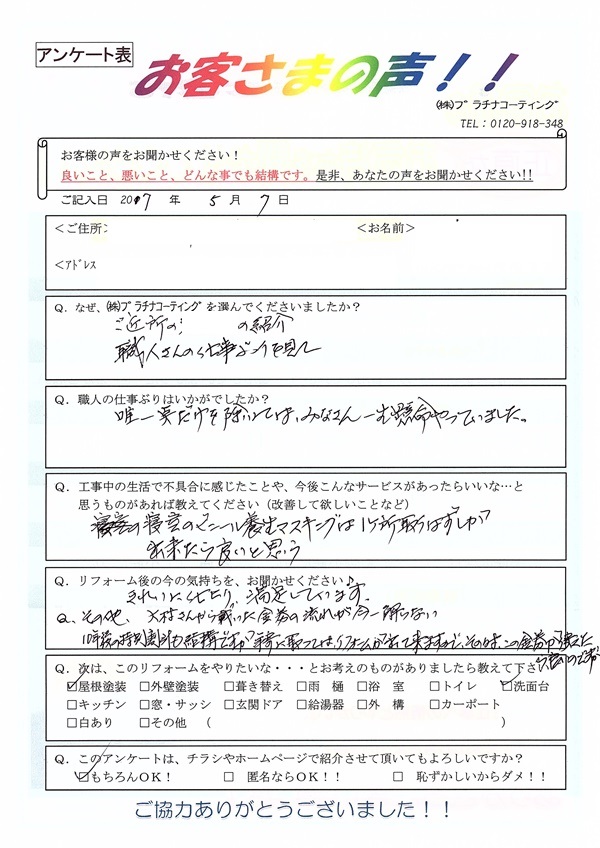 アンケート表
お客さまの声！！
(株)プラチナコーティング
TEL：0120-918-348
お客様の声をお聞かせください！
良いこと、悪いこと、どんな事でも結構です。是非、あなたの声をお聞かせください!!
ご記入日 2017 年 5 月 7 日
<ご住所> <お名前>
<アドレス
Q．なぜ、(株)プラチナコーティングを選んでくださいましたか？
ご近所の の紹介
職人さんの仕事ぶりを見て
Q．職人の仕事ぶりはいかがでしたか？
唯一 を除いては、みなさん一生懸命やっていました。
Q．工事中の生活で不具合に感じたことや、今後こんなサービスがあったらいいな…と
思うものがあれば教えてください（改善して欲しいことなど）
寝室のビニール養生マスキングは1ヶ所取りはずしが
出来たら良いと思う
Q．リフォーム後の今の気持ちを、お聞かせください♪
きれいになり、満足しています。
Q、その他、大村さんから戴いた金券の流れが今一解らない
10年後の特別割引も結構ですが
Q．次は、このリフォームをやりたいな・・・とお考えのものがありましたら教えて下さい
☑屋根塗装 □外壁塗装 □葺き替え □雨 樋 □浴 室 □トイレ ☑洗面台
□キッチン □窓・サッシ □玄関ドア □給湯器 □外 構 □カーポート
□白あり □その他 （ ）
Q．このアンケートは、チラシやホームページで紹介させて頂いてもよろしいですか？
☑もちろんOK！ □ 匿名ならOK！！ □ 恥ずかしいからダメ！！
ご協力ありがとうございました！！